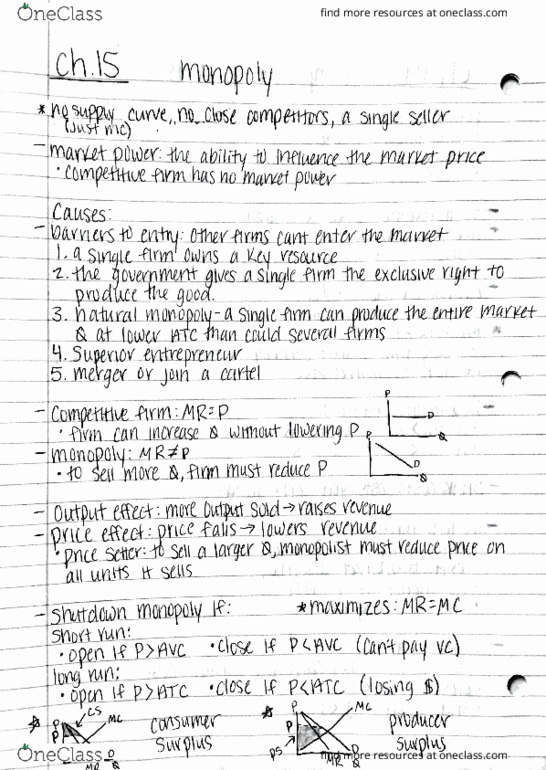 OneClass
find more resources at oneclass.com
Ch.15 monopoly
* no supply curve, no close competitors, a single seller
(just mc)
- market power: the ability to influence the market price
• competitive firm has no market power
Causes:
- barriers to entry: other firms cant enter the market
1. a single firm owns a key resource
2. the government gives a single firm the exclusive right to
produce the good.
3. natural monopoly - a single firm can produce the entire market
Q at lower ATC than could several firms
4. Superior entrepreneur
5. merger or join a cartel
- Competitive firm: MR=P
• firm can increase Q without lowering P
P
D
Q
- monopoly: MR≠P
• to sell more Q, firm must reduce P
P
D
Q
- Output effect: more output sold → raises revenue
- price effect: price falls → lowers revenue
• price setter: to sell a larger Q, monopolist must reduce price on
all units it sells
- Shutdown monopoly if: *maximizes: MR=MC
short run:
• open if P>AVC • close if P<AVC (can't pay VC)
long run:
• open if P>ATC • close if P<ATC (losing $)
* P P CS MC MR D Q consumer surplus
* P P PS MC MR D Q producer surplus
OneClass
find more resources at oneclass.com